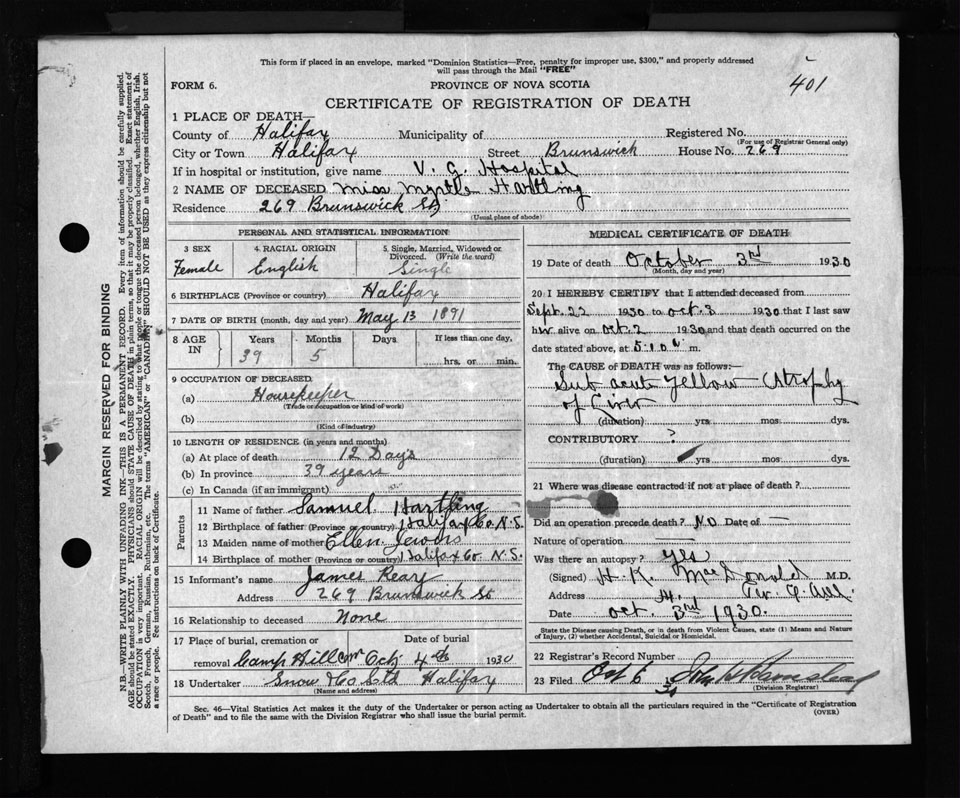 This form if placed in an envelope, marked "Dominion Statistics—Free, penalty for improper use, $300," and properly addressed
will pass through the Mail "FREE"
401
FORM 6.
PROVINCE OF NOVA SCOTIA
CERTIFICATE OF REGISTRATION OF DEATH
1 PLACE OF DEATH—
County of Halifax Municipality of Registered No.
(For use of Registrar General only)
City or Town Halifax Street Brunswick House No. 269
If in hospital or institution, give name V. G. Hospital
2 NAME OF DECEASED Miss Myrtle Hartling
Residence 269 Brunswick St
(Usual place of abode)
PERSONAL AND STATISTICAL INFORMATION
3 SEX 4. RACIAL ORIGIN 5. Single, Married, Widowed or Divorced. (Write the word)
Female English Single
6 BIRTHPLACE (Province or country) Halifax
7 DATE OF BIRTH (month, day and year) May 13 1891
8 AGE IN Years Months Days If less than one day,
39 5 hrs. or min.
9 OCCUPATION OF DECEASED
(a) Housekeeper
(Trade or occupation or kind of work)
(b)
(Kind of industry)
10 LENGTH OF RESIDENCE (in years and months)
(a) At place of death 12 Days
(b) In province 39 years
(c) In Canada (if an immigrant)
Parents
11 Name of father Samuel Hartling
12 Birthplace of father (Province or country) Halifax Co. N.S.
13 Maiden name of mother Ellen
14 Birthplace of mother (Province or country) Halifax Co N.S.
15 Informant's name James Reary
Address 269 Brunswick St
16 Relationship to deceased None
17 Place of burial, cremation or Date of burial
removal Camp Hill Cem Oct 4th 1930
18 Undertaker Snow & Co Ltd Halifax
(Name and address)
MEDICAL CERTIFICATE OF DEATH
19 Date of death October 3rd 1930
(Month, day and year)
20 I HEREBY CERTIFY that I attended deceased from
Sept. 22 1930 to Oct 3 1930 that I last saw
her alive on Oct. 2 1930 and that death occurred on the
date stated above, at 5:10 a m.
The CAUSE OF DEATH was as follows:—
Sub acute yellow Atrophy
of Liver
(duration) yrs. mos. dys.
CONTRIBUTORY ?
(duration) yrs mos dys.
21 Where was disease contracted if not at place of death?
Did an operation precede death? No Date of —
Nature of operation —
Was there an autopsy? Yes
(Signed) H. K. MacDonald M.D.
Address
Date Oct. 3rd 1930.
State the Disease causing Death, or in death from Violent Causes, state (1) Means and Nature
of Injury, (2) whether Accidental, Suicidal or Homicidal.
22 Registrar's Record Number
23 Filed Oct 6 30
(Division Registrar)
Sec. 46—Vital Statistics Act makes it the duty of the Undertaker or person acting as Undertaker to obtain all the particulars required in the "Certificate of Registration
of Death" and to file the same with the Division Registrar who shall issue the burial permit.
(OVER)
MARGIN RESERVED FOR BINDING
N.B.—WRITE PLAINLY WITH UNFADING INK—THIS IS A PERMANENT RECORD. Every item of information should be carefully supplied.
AGE should be stated EXACTLY. PHYSICIANS should STATE CAUSE OF DEATH in plain terms, so that it may be properly classified. Exact statement of
OCCUPATION is very important. RACIAL ORIGIN will be described by stating to what people or tongue the deceased person belonged, whether English, Irish,
Scotch, French, German, Russian, Ruthenian, etc. The terms "AMERICAN" or "CANADIAN" SHOULD NOT BE USED as they express citizenship but not
a race or people. See instructions on back of Certificate.